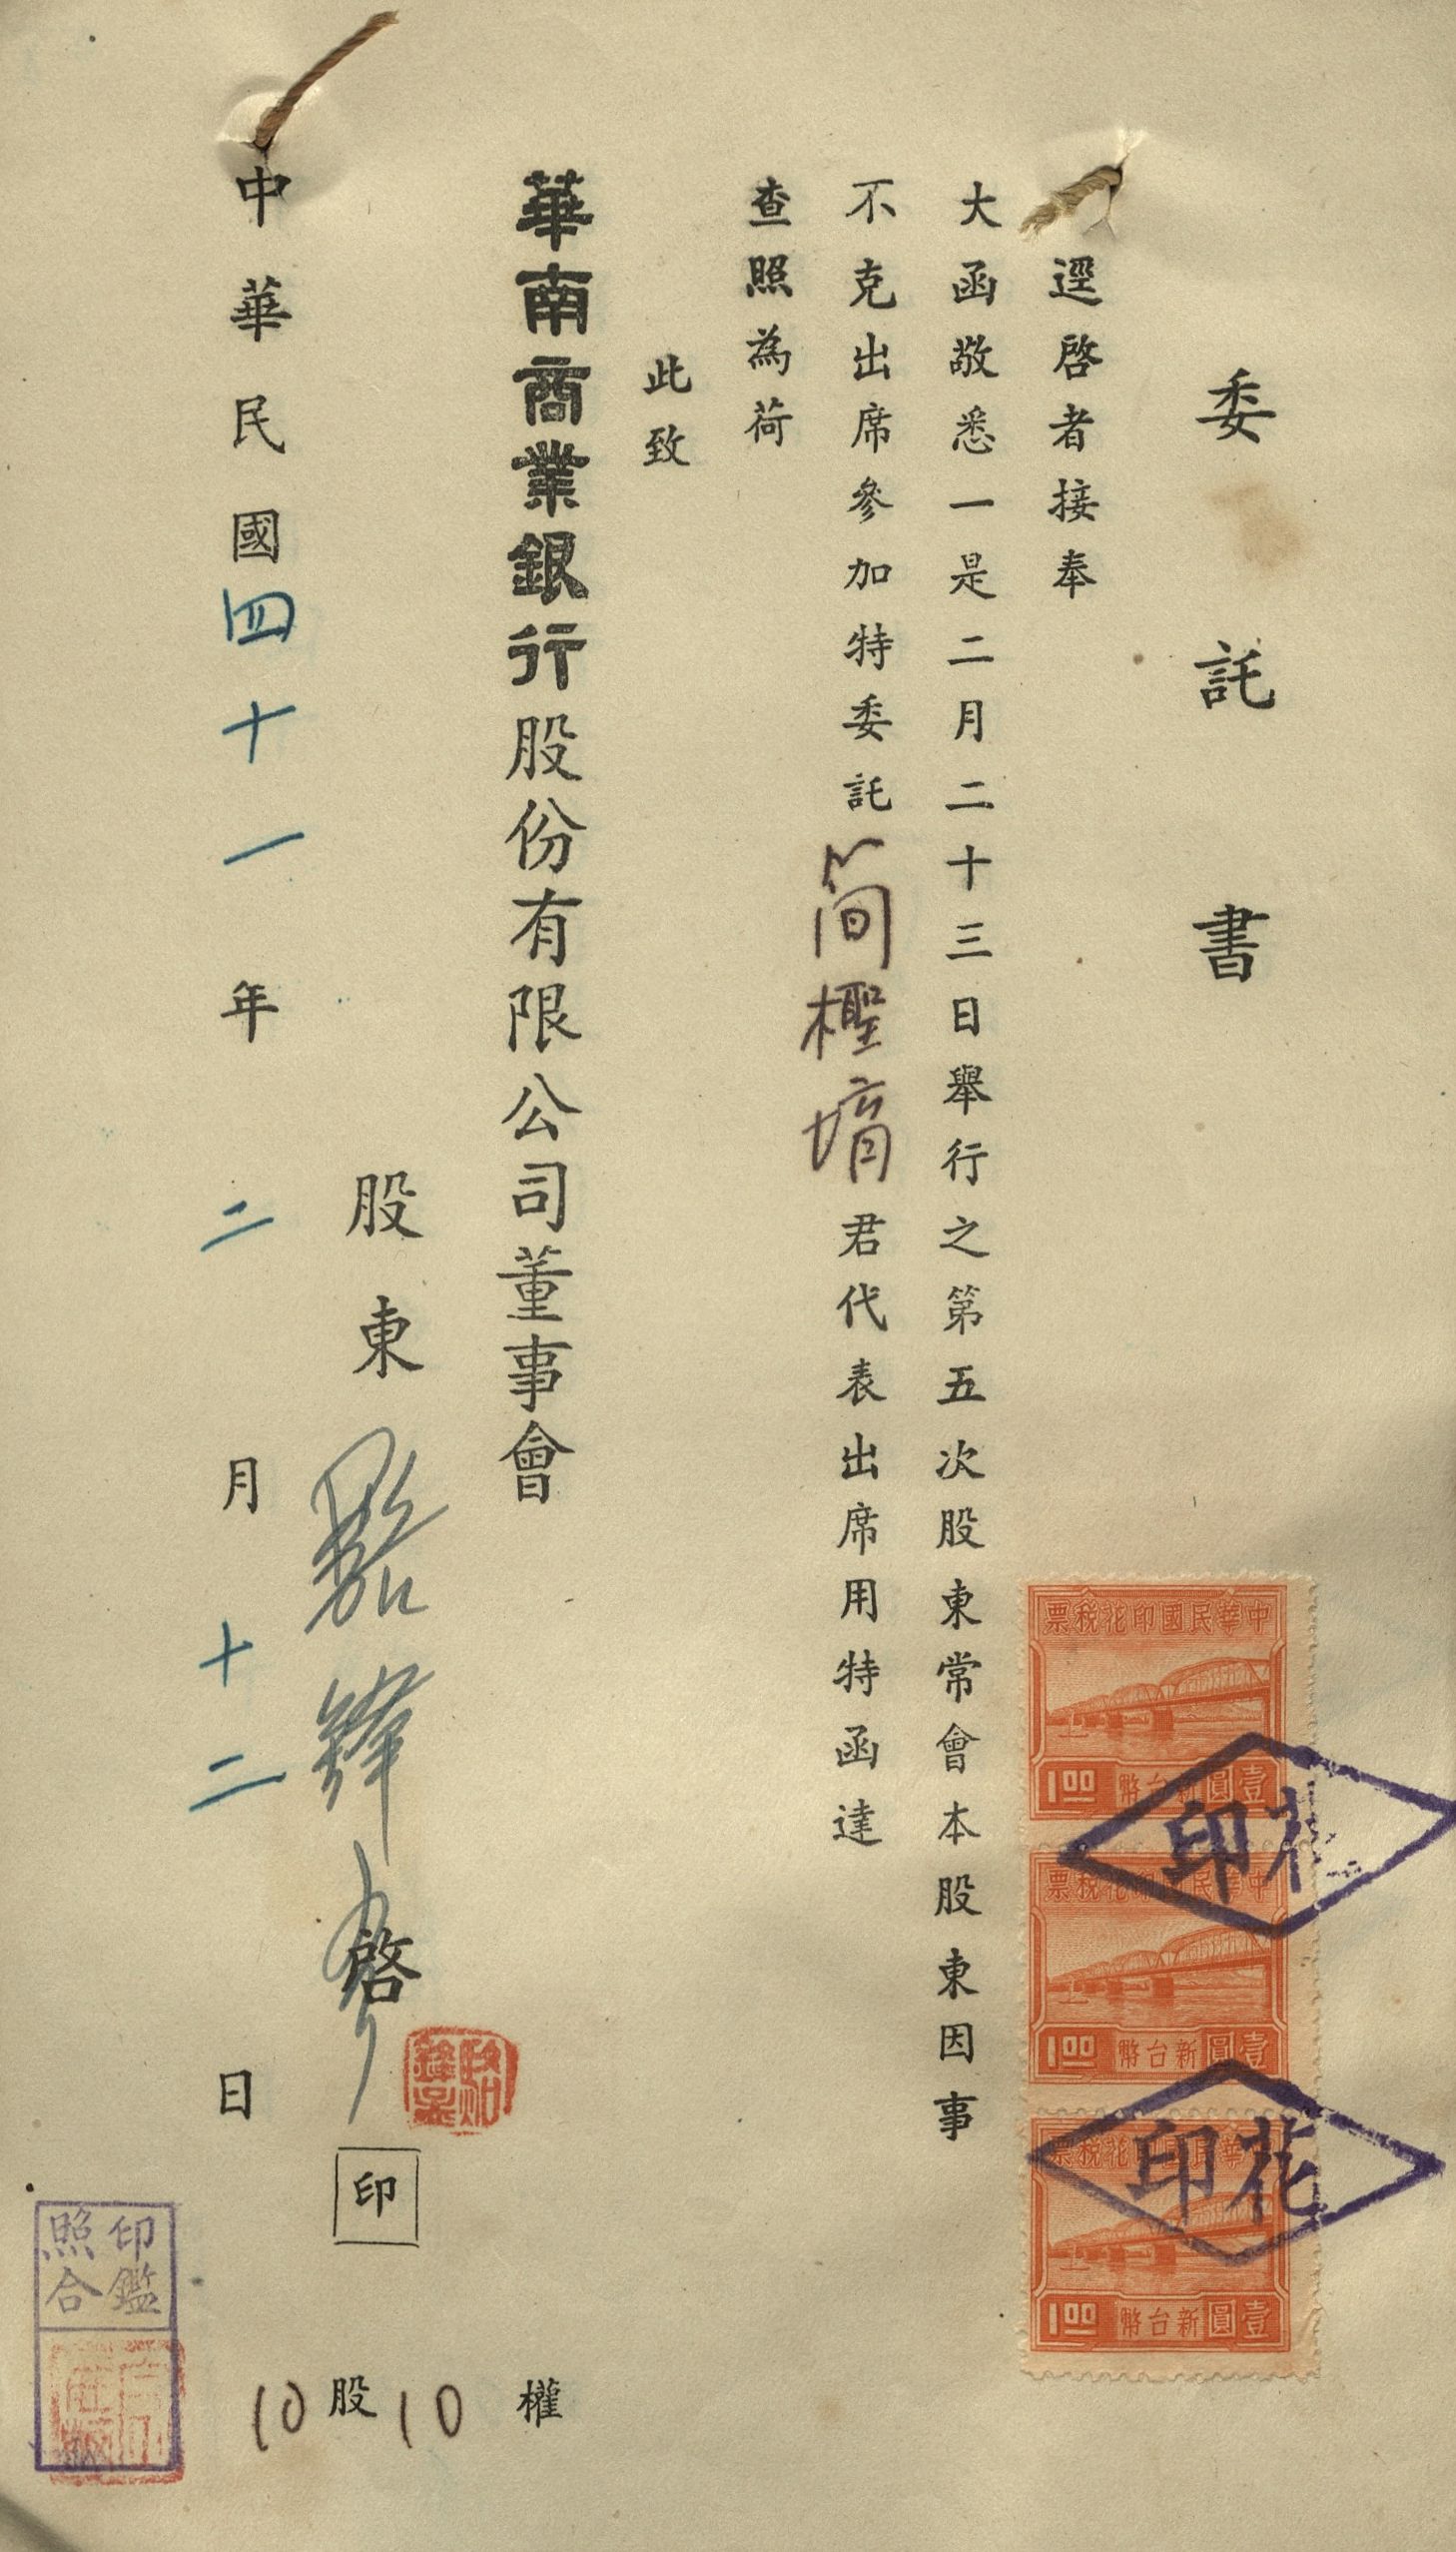 委託書
逕啓者接奉
大函敬悉一是二月二十三日舉行之第五次股東常會本股東因事
不克出席參加特委託簡檉堉君代表出席用特函達
查照為荷
此致
華南商業銀行股份有限公司董事會
股東駱鋒 啓
印
中華民國四十一年二月十二日
10股10權
印鑑
照合
中華民國印花稅票
1.00 新台幣壹圓
花印
中華民國印花稅票
1.00 新台幣壹圓
花印
中華民國印花稅票
1.00 新台幣壹圓